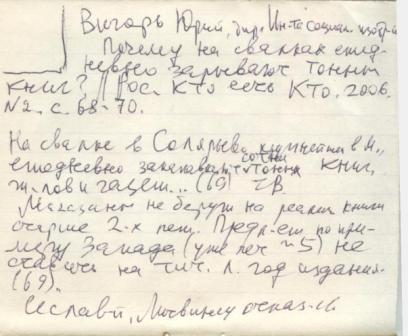 Вигорь Юрий, дир. Ин-та социал. изобр.
Почему на свалках ежед-
невно зарывают тонны
книг? // Рос. Кто есть Кто. 2006.
№2. с. 68-70.
На свалке в Солярьево, крупнейшей в М.,
ежедневно закапывают сотни тонн книг,
ж-лов и газет... (69)
Магазины не берут на реализ. книги
старше 2-х лет. Предл-ет по при-
меру Запада (уже лет 5) не
ставить на тит. л. год издания.
(69).